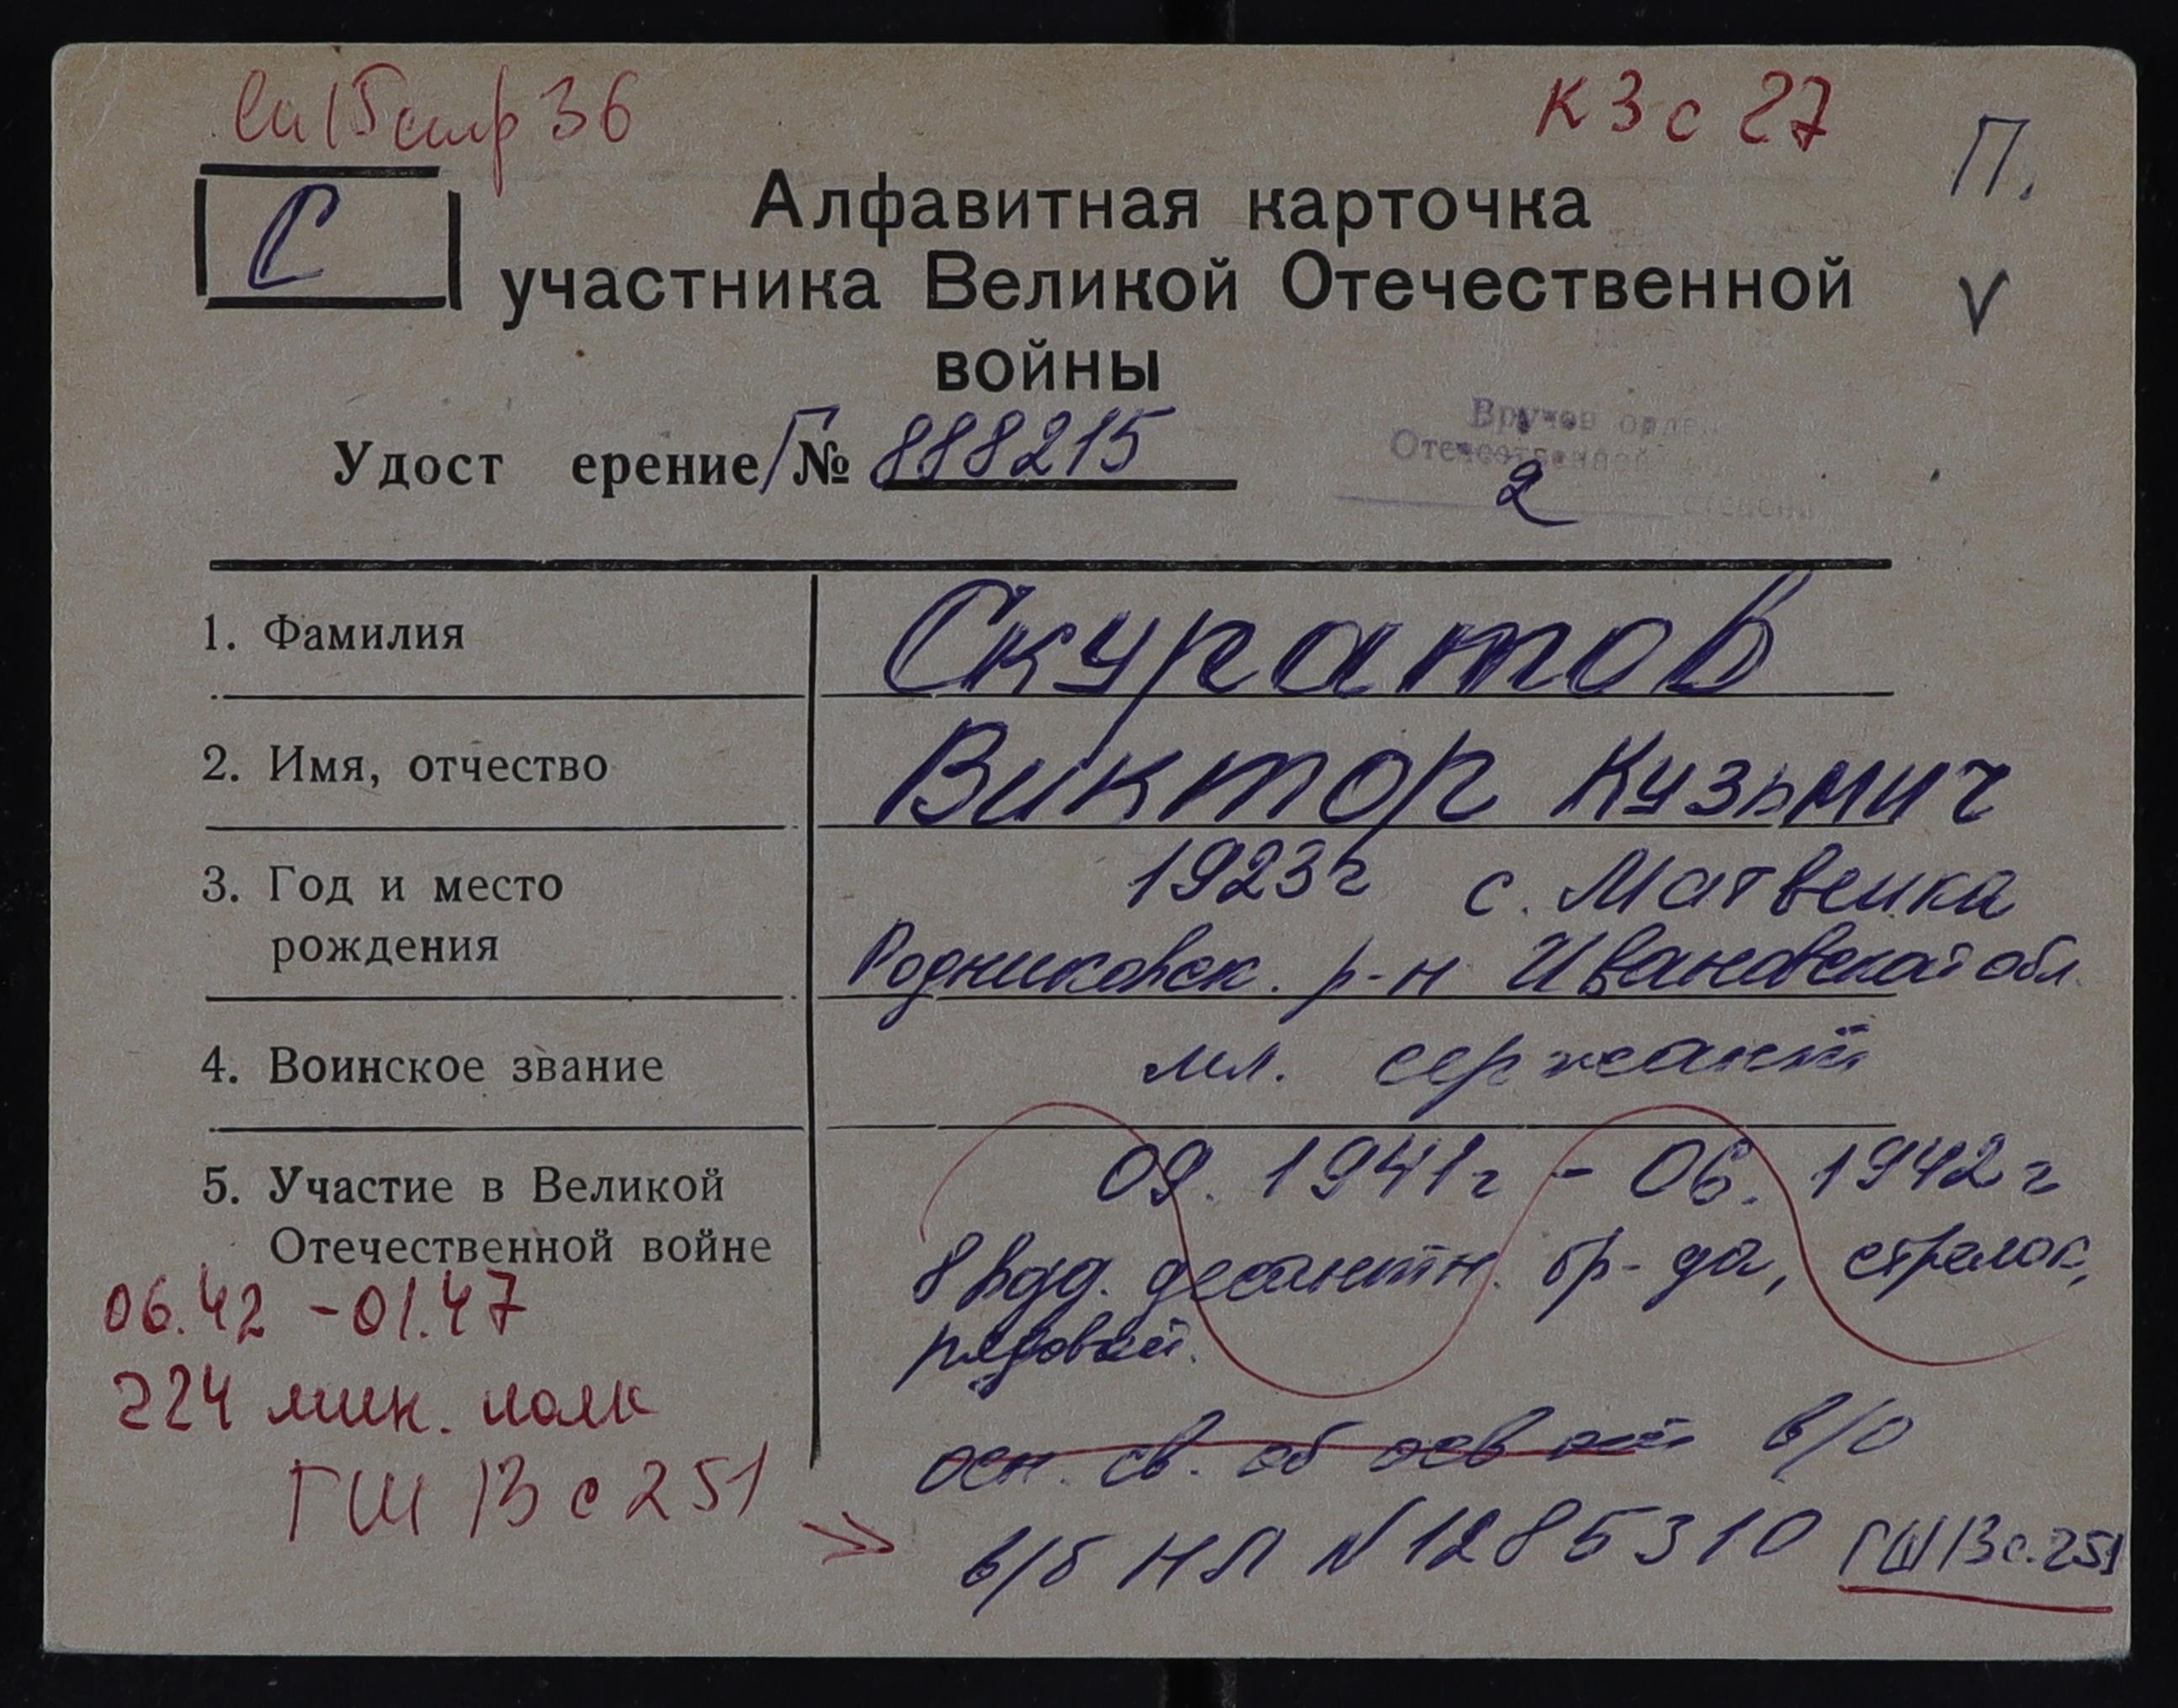 Сп 15 стр 36
К 3 с 27
П.
V
С
Алфавитная карточка
участника Великой Отечественной
войны
Удост ерение Г № 888215
Вручен орден
Отечественной
2 степени
1. Фамилия Скуратов
2. Имя, отчество Виктор Кузьмич
3. Год и место 1923г с. Матвеика
рождения Родниковск. р-н Ивановской обл.
4. Воинское звание мл. сержант
5. Участие в Великой 09. 1941г - 06. 1942г
Отечественной войне 8 вдд. десантн. бр-да, стрелок,
06.42 - 01.47 рядовой.
224 мин. полк
осн. св. об в/о
ГШ 13 с 251
в/б НЛ № 1285310 ГШ 13 с. 251